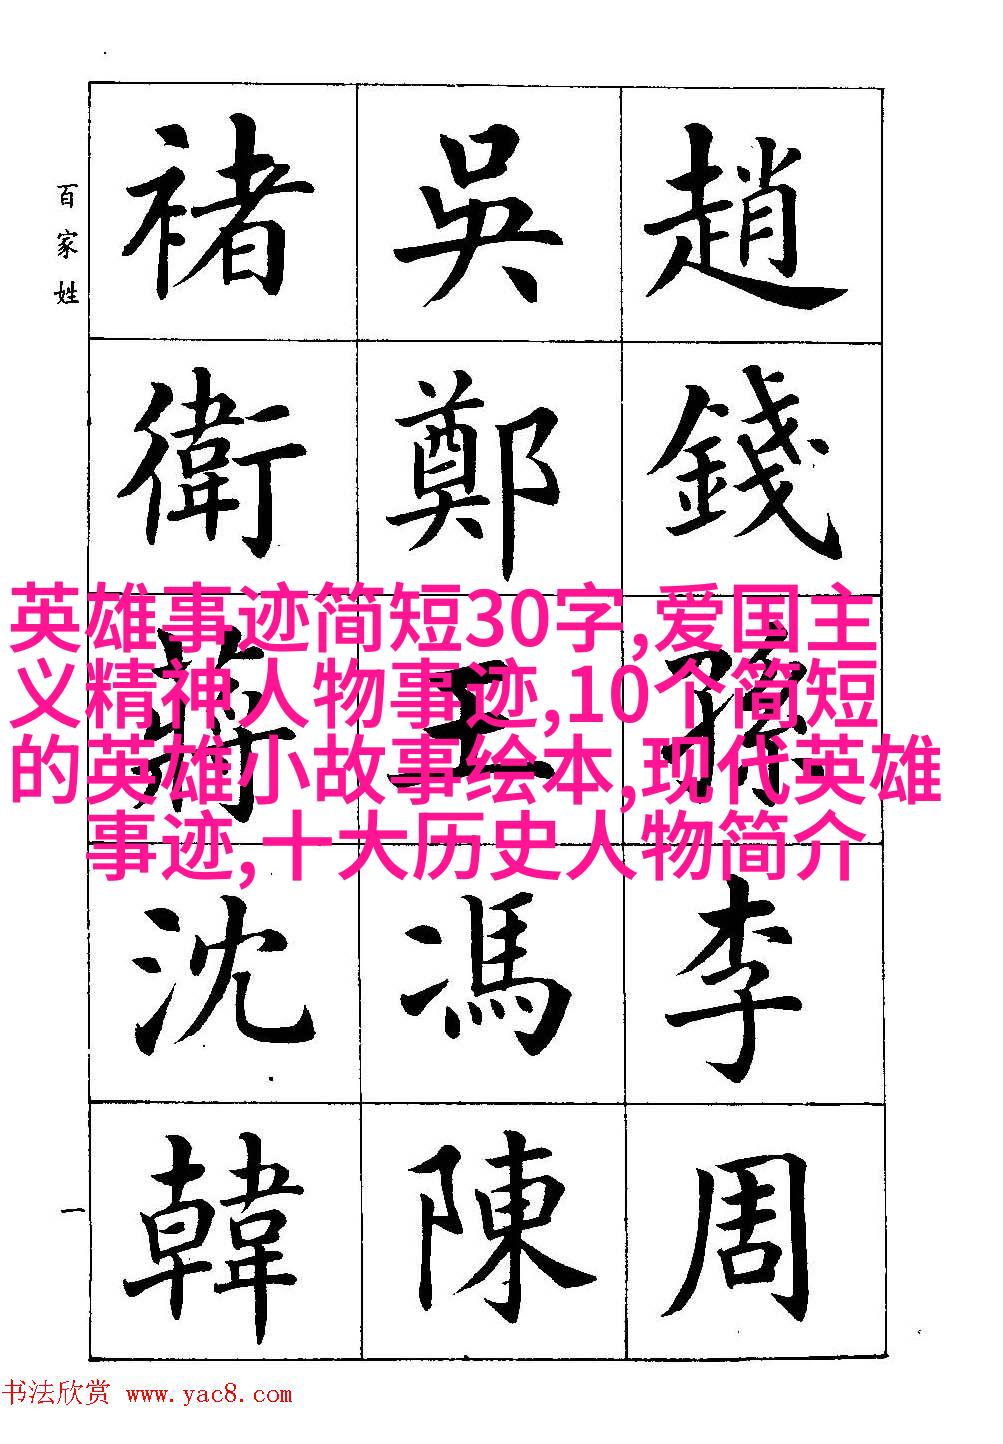 百家姓
趙錢孫李周
吳鄭王馮陳
褚衛蔣沈韓
一
英雄事迹简短30字,爱国主
义精神人物事迹,10个简短
的英雄小故事绘本,现代英雄
事迹,十大历史人物简介
书法欣赏 www.yac8.com